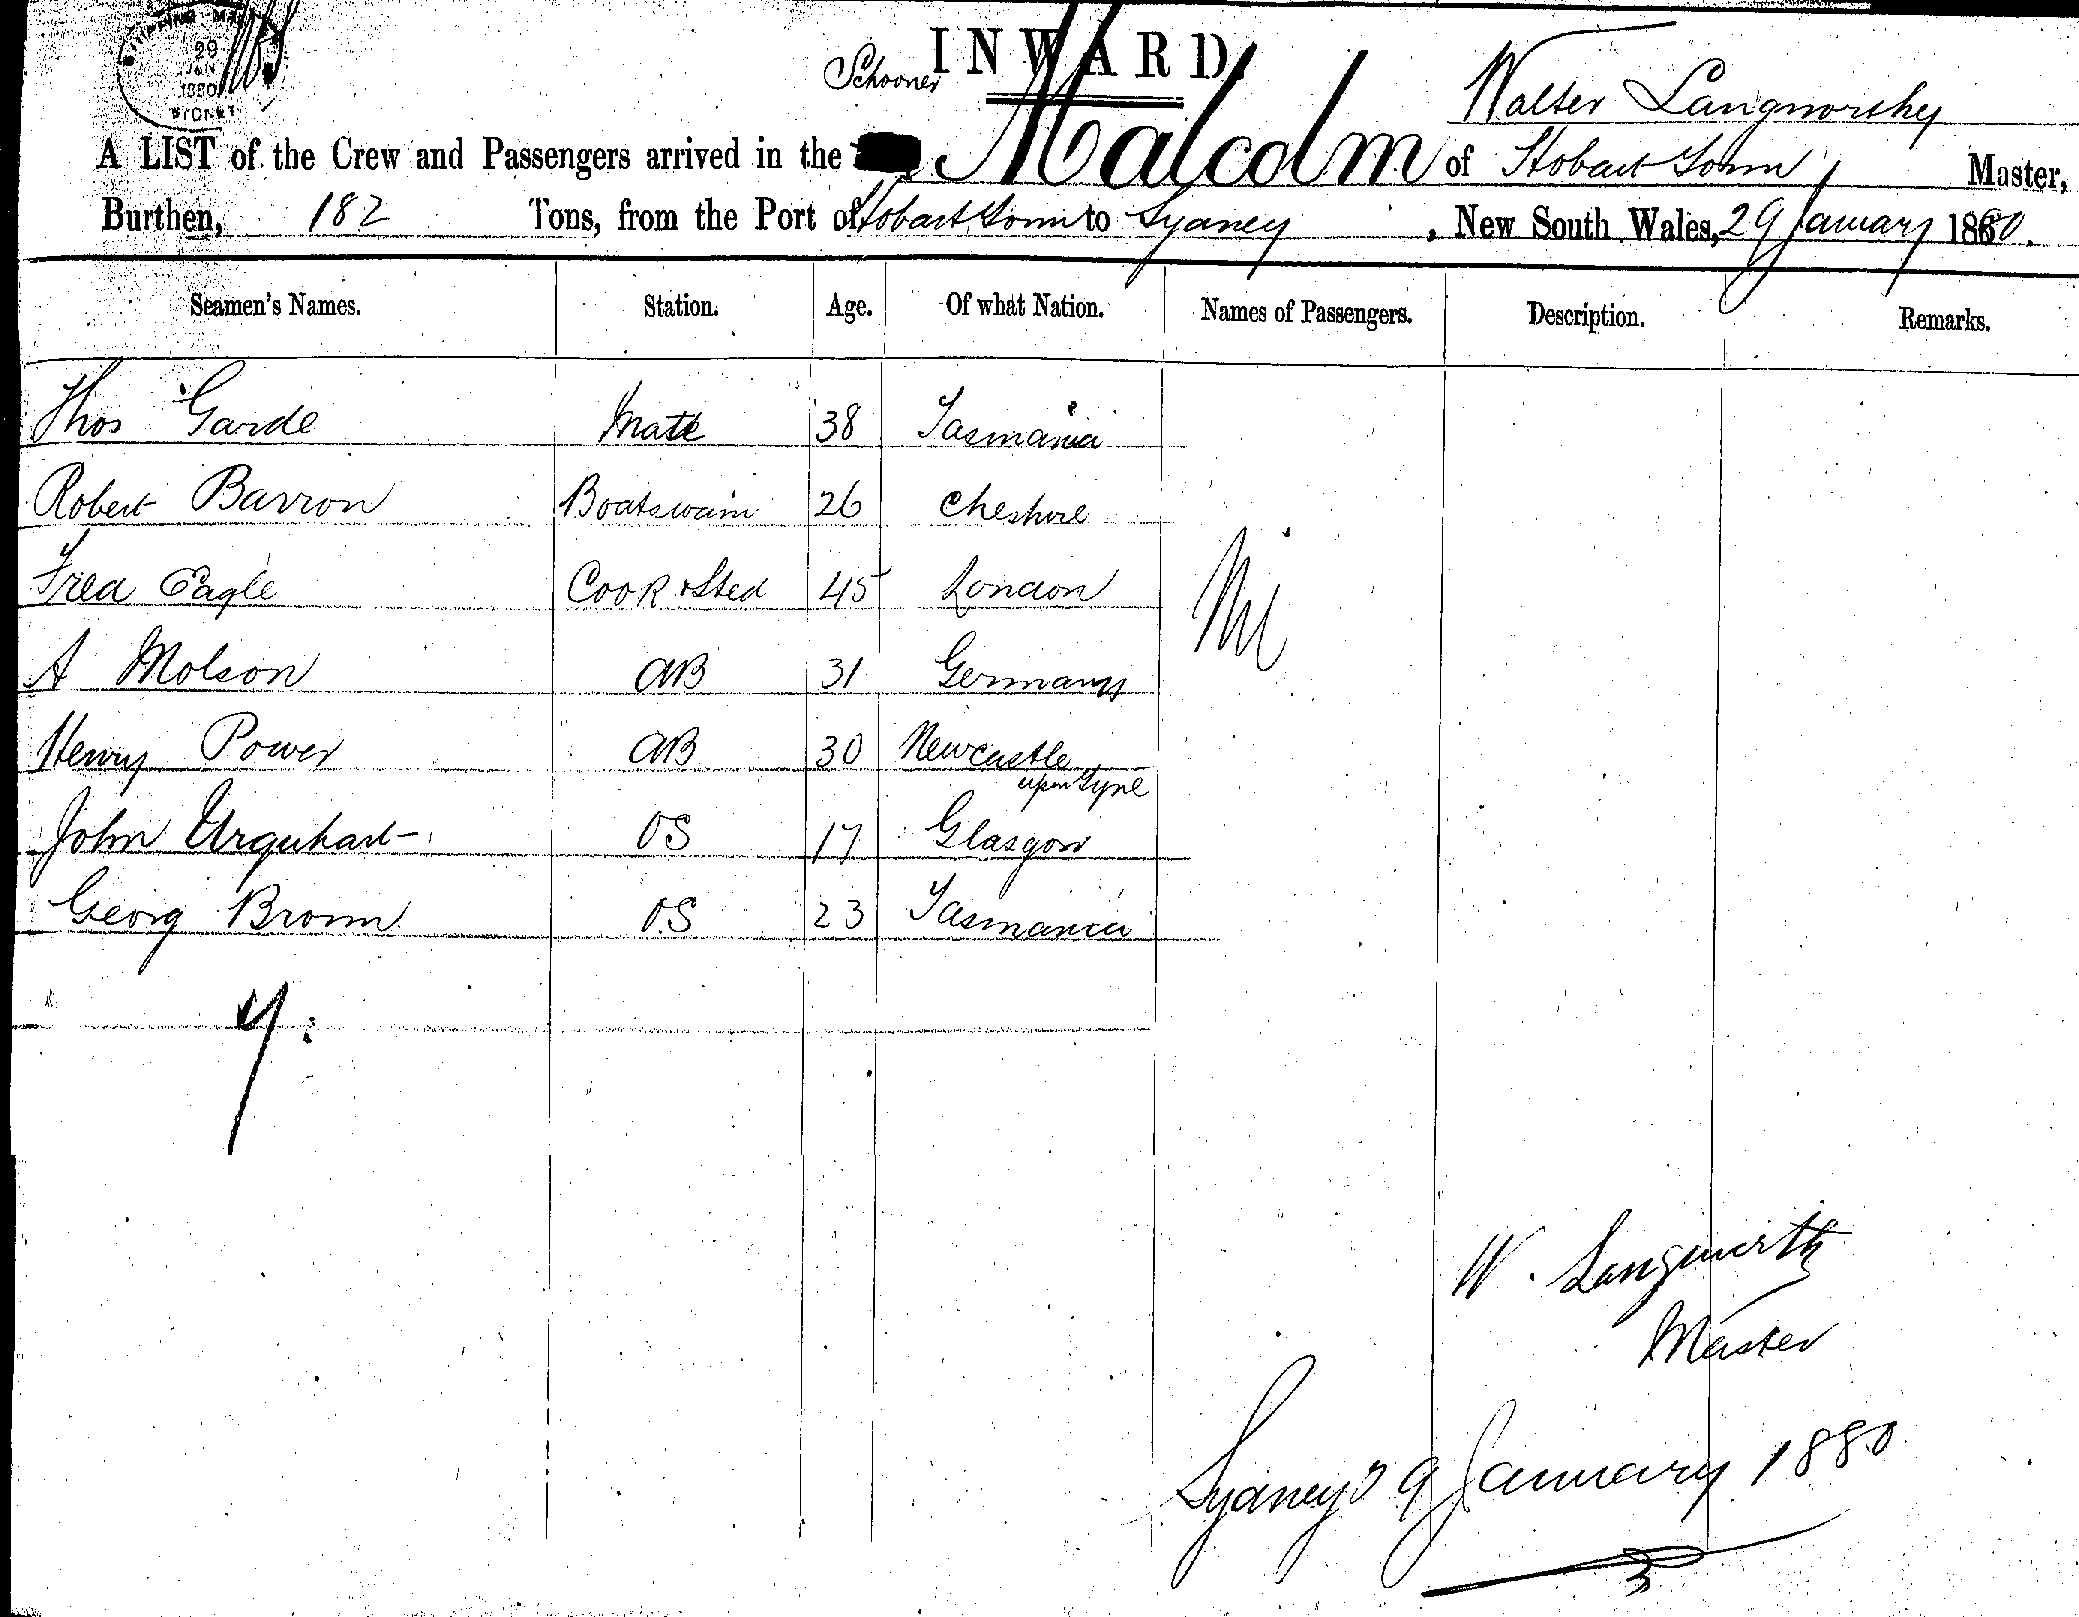 SHIPPING MAS
29
JAN
1880
SYDNEY
INWARD.
Schooner
Walter Langworthy
A LIST of the Crew and Passengers arrived in the Malcolm of Hobart Town, Master,
Burthen, 182 Tons, from the Port of Hobart Town to Sydney, New South Wales, 29 January 1880.
Seamen's Names. Station. Age. Of what Nation. Names of Passengers. Description. Remarks.
Thos Garde Mate 38 Tasmania
Robert Barron Boatswain 26 Cheshire
Fred Eagle Cook & Sted 45 London
Nil
A Molson AB 31 Germany
Henry Power AB 30 Newcastle
upon Tyne
John Urquhart OS 17 Glasgow
Georg Brown OS 23 Tasmania
7.
W. Langworthy
Master
Sydney 29 January 1880